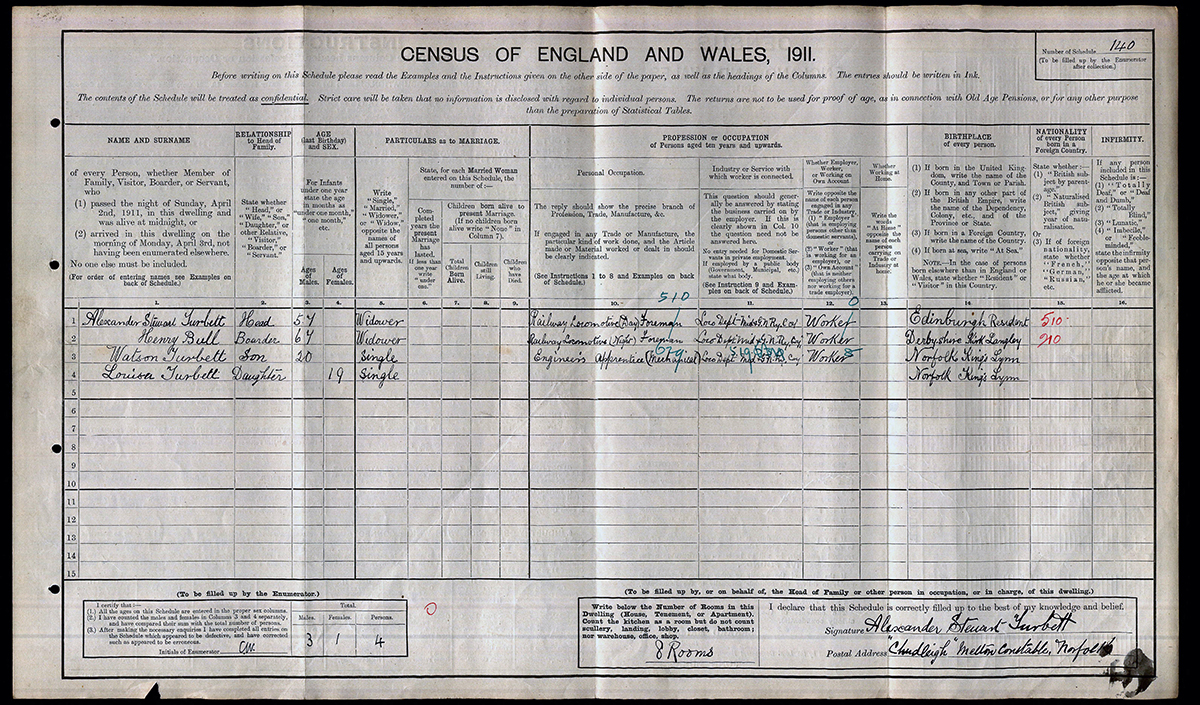 CENSUS OF ENGLAND AND WALES, 1911.
Number of Schedule 140
(To be filled up by the Enumerator after collection.)
Before writing on this Schedule please read the Examples and the Instructions given on the other side of the paper, as well as the headings of the Columns. The entries should be written in Ink.
The contents of the Schedule will be treated as confidential. Strict care will be taken that no information is disclosed with regard to individual persons. The returns are not to be used for proof of age, as in connection with Old Age Pensions, or for any other purpose
than the preparation of Statistical Tables.
NAME AND SURNAME
of every Person, whether Member of Family, Visitor, Boarder, or Servant, who
(1) passed the night of Sunday, April 2nd, 1911, in this dwelling and was alive at midnight, or
(2) arrived in this dwelling on the morning of Monday, April 3rd, not having been enumerated elsewhere.
No one else must be included.
(For order of entering names see Examples on back of Schedule.)
RELATIONSHIP to Head of Family.
State whether "Head," or "Wife," "Son," "Daughter," or other Relative, "Visitor," "Boarder," or "Servant."
AGE (last Birthday) and SEX.
For Infants under one year state the age in months as "under one month," "one month," etc.
Ages of Males.
Ages of Females.
PARTICULARS as to MARRIAGE.
Write "Single," "Married," "Widower," or "Widow," opposite the names of all persons aged 15 years and upwards.
State, for each Married Woman entered on this Schedule, the number of:—
Completed years the present Marriage has lasted. If less than one year write "under one."
Children born alive to present Marriage. (If no children born alive write "None" in Column 7).
Total Children Born Alive.
Children still Living.
Children who have Died.
PROFESSION or OCCUPATION
of Persons aged ten years and upwards.
Personal Occupation.
The reply should show the precise branch of Profession, Trade, Manufacture, &c.
If engaged in any Trade or Manufacture, the particular kind of work done, and the Article made or Material worked or dealt in should be clearly indicated.
(See Instructions 1 to 8 and Examples on back of Schedule.)
Industry or Service with which worker is connected.
This question should generally be answered by stating the business carried on by the employer. If this is clearly shown in Col. 10 the question need not be answered here.
No entry needed for Domestic Servants in private employment. If employed by a public body (Government, Municipal, etc.) state what body.
(See Instruction 9 and Examples on back of Schedule.)
Whether Employer, Worker, or Working on Own Account.
Write opposite the name of each person engaged in any Trade or Industry,
(1) "Employer" (that is employing persons other than domestic servants), or
(2) "Worker" (that is working for an employer), or
(3) "Own Account" (that is neither employing others nor working for a trade employer).
Whether Working at Home.
Write the words "At Home" opposite the name of each person carrying on Trade or Industry at home.
BIRTHPLACE
of every person.
(1) If born in the United Kingdom, write the name of the County, and Town or Parish.
(2) If born in any other part of the British Empire, write the name of the Dependency, Colony, etc., and of the Province or State.
(3) If born in a Foreign Country, write the name of the Country.
(4) If born at sea, write "At Sea."
NOTE.—In the case of persons born elsewhere than in England or Wales, state whether "Resident" or "Visitor" in this Country.
NATIONALITY of every Person born in a Foreign Country.
State whether:—
(1) "British subject by parentage,"
(2) "Naturalised British subject," giving year of naturalisation.
Or
(3) If of foreign nationality, state whether "French," "German," "Russian," etc.
INFIRMITY.
If any person included in this Schedule is:—
(1) "Totally Deaf," or "Deaf and Dumb,"
(2) "Totally Blind,"
(3) "Lunatic,"
(4) "Imbecile," or "Feeble-minded,"
state the infirmity opposite that person's name, and the age at which he or she became afflicted.
1. 2. 3. 4. 5. 6. 7. 8. 9. 10. 11. 12. 13. 14 15. 16.
510 0
1 Alexander Steuart Turbett Head 57 Widower Railway Locomotive (Day) Foreman Loco Dept Mid & G.N. Ry. Coy Worker Edinburgh Resident 510
2 Henry Bull Boarder 67 Widower Railway Locomotive (Night) Foreman Loco Dept Mid & G.N. Ry. Coy Worker Derbyshire Kirk Langley 210
3 Watson Turbett Son 20 Single Engineer's Apprentice (Mechanical) Loco Dept Mid & G.N. Ry. Coy Worker Norfolk King's Lynn
4 Louisa Turbett Daughter 19 Single Norfolk King's Lynn
5
6
7
8
9
10
11
12
13
14
15
(To be filled up by the Enumerator.)
I certify that:—
(1.) All the ages on this Schedule are entered in the proper sex columns.
(2.) I have counted the males and females in Columns 3 and 4 separately, and have compared their sum with the total number of persons.
(3.) After making the necessary enquiries I have completed all entries on the Schedule which appeared to be defective, and have corrected such as appeared to be erroneous.
Initials of Enumerator
Total.
Males. Females. Persons.
3 1 4
0
(To be filled up by, or on behalf of, the Head of Family or other person in occupation, or in charge, of this dwelling.)
Write below the Number of Rooms in this Dwelling (House, Tenement, or Apartment). Count the kitchen as a room but do not count scullery, landing, lobby, closet, bathroom; nor warehouse, office, shop.
8 Rooms
I declare that this Schedule is correctly filled up to the best of my knowledge and belief.
Signature Alexander Steuart Turbett
Postal Address "Chudleigh" Melton Constable, Norfolk